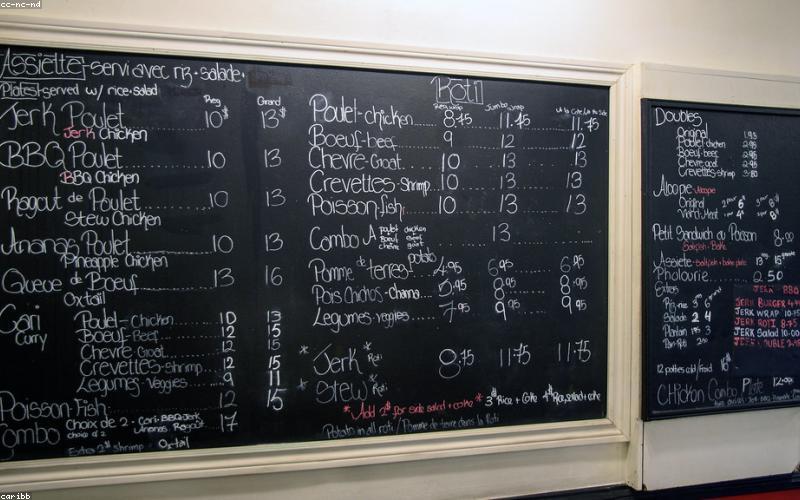 cc-nc-nd
Assiette-servi avec riz-salade.
Plates-served w/ rice-salad
Reg Grand
Jerk Poulet 10$ 13$
Jerk Chicken
BBQ Poulet 10 13
BBQ Chicken
Ragout de Poulet 10 13
Stew Chicken
Ananas Poulet 10 13
Pineapple Chicken
Queue de Boeuf 13 16
Oxtail
Cari Poulet-Chicken 10 13
Curry Boeuf-Beef 12 15
Chevre-Goat 12 15
Crevettes-shrimp 12 15
Legumes-Veggies 9 11
Poisson-Fish 12 15
Combo Choix de 2 - Cari-BBQ-Jerk 17
choice of 2 Ananas Ragout
Extra 2$ Shrimp Oxtail
Roti
Reg wrap Jumbo wrap
Poulet-chicken 8.75 11.75 11.75
Boeuf-beef 9 12 12
Chevre-Goat 10 13 13
Crevettes-shrimp 10 13 13
Poisson-fish 10 13 13
Combo A poulet chicken 13
Boeuf beef
chevre goat
Pomme de terres potato 4.95 6.95 6.95
Pois Chichos-channa 5.95 8.95 8.95
Legumes-veggies 7.95 9.95 9.95
* Jerk * Roti 8.75 11.75 11.75
* Stew * Roti
* Add 2$ for side salad + coke * 3$ Rice + Coke 4$ Rice, salad + coke
Potato in all roti / Pomme de terre dans la Roti
Doubles
Original 1.95
Poulet-chicken 2.95
Boeuf-beef 2.95
Chevre-goat 2.95
Crevettes-shrimp 3.95
Aloopie Aloopie
Original
Petit Sandwich au Poisson 8.00
Saltfish-Bake
Assiete-Saltfish + bake plate
Pholourie 2.50
Extras
JERK BBQ
JERK BURGER
JERK WRAP
JERK ROTI 8.75
JERK Salad 10.00
JERK DOUBLE
Salade 2 4
12 patties cold/froid
Chicken Combo Plate
caribb